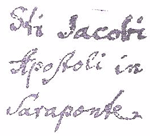 Sti Jacobi
Apostoli in
Saraponte